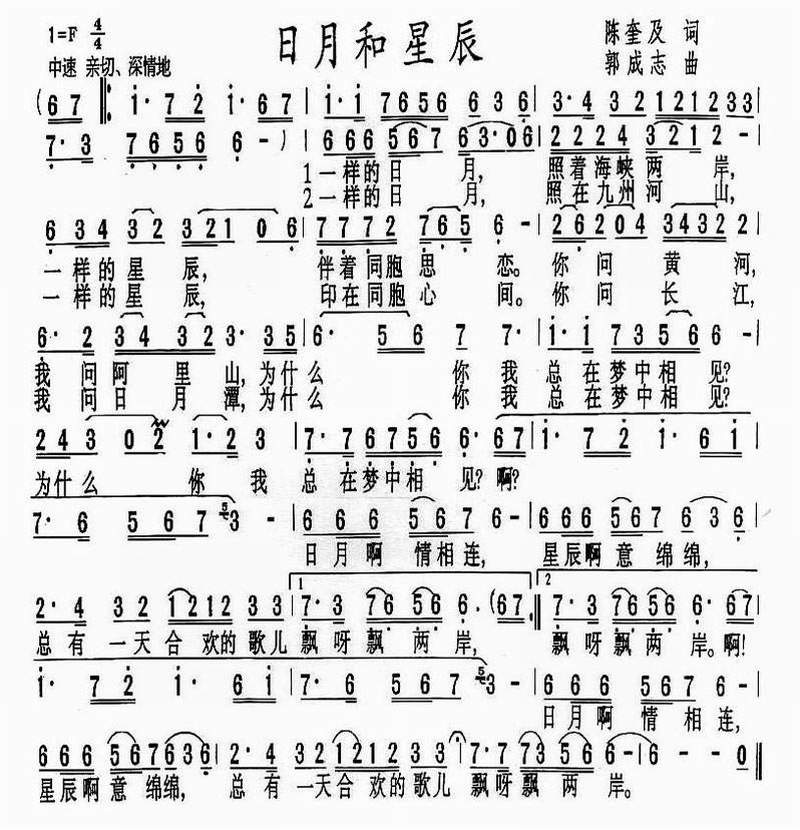 日月和星辰
1=F 4/4
陈奎及 词
中速 亲切、深情地
郭成志 曲
(6 7 𝄆 i· 7 2 i· 6 7 | i· i 7 6 5 6 6 3 6 | 3· 4 3 2 1 2 1 2 3 3 |
7· 3 7 6 5 6 6 - ) | 6 6 6 5 6 7 6 3· 0 6 | 2 2 2 4 3 2 1 2 - |
1一样的日 月, 照着海峡两 岸,
2一样的日 月, 照在九州河 山,
6 3 4 3 2 3 2 1 0 6 | 7 7 7 2 7 6 5 6 - | 2 6 2 0 4 3 4 3 2 2 |
一样的星 辰, 伴着同胞思 恋。你问 黄 河,
一样的星 辰, 印在同胞心 间。你问 长 江,
6· 2 3 4 3 2 3· 3 5 | 6· 5 6 7 7· | i· i 7 3 5 6 6 - |
我 问阿 里 山,为什么 你 我 总 在梦中相 见?
我 问日 月 潭,为什么 你 我 总 在梦中相 见?
2 4 3 0 2 1· 2 3 | 7· 7 6 7 5 6 6· 6 7 | i· 7 2 i· 6 i |
为什么 你 我 总 在梦中相 见?啊?
7· 6 5 6 7 3 - | 6 6 6 5 6 7 6 - | 6 6 6 5 6 7 6 3 6 |
日月啊 情相连, 星辰啊意 绵 绵,
2· 4 3 2 1 2 1 2 3 3 | 7· 3 7 6 5 6 6· (6 7 :‖ 7· 3 7 6 5 6 6· 6 7 |
总 有 一天合 欢的歌儿 飘 呀飘 两 岸, 飘 呀飘 两 岸。啊!
i· 7 2 i· 6 i | 7· 6 5 6 7 3 - | 6 6 6 5 6 7 6 - |
日月啊 情 相连,
6 6 6 5 6 7 6 3 6 | 2· 4 3 2 1 2 1 2 3 3 | 7· 7 7 3 5 6 6 - | 6 - - 0 ‖
星辰啊意 绵绵, 总 有 一天合 欢的歌儿 飘 呀飘 两 岸。